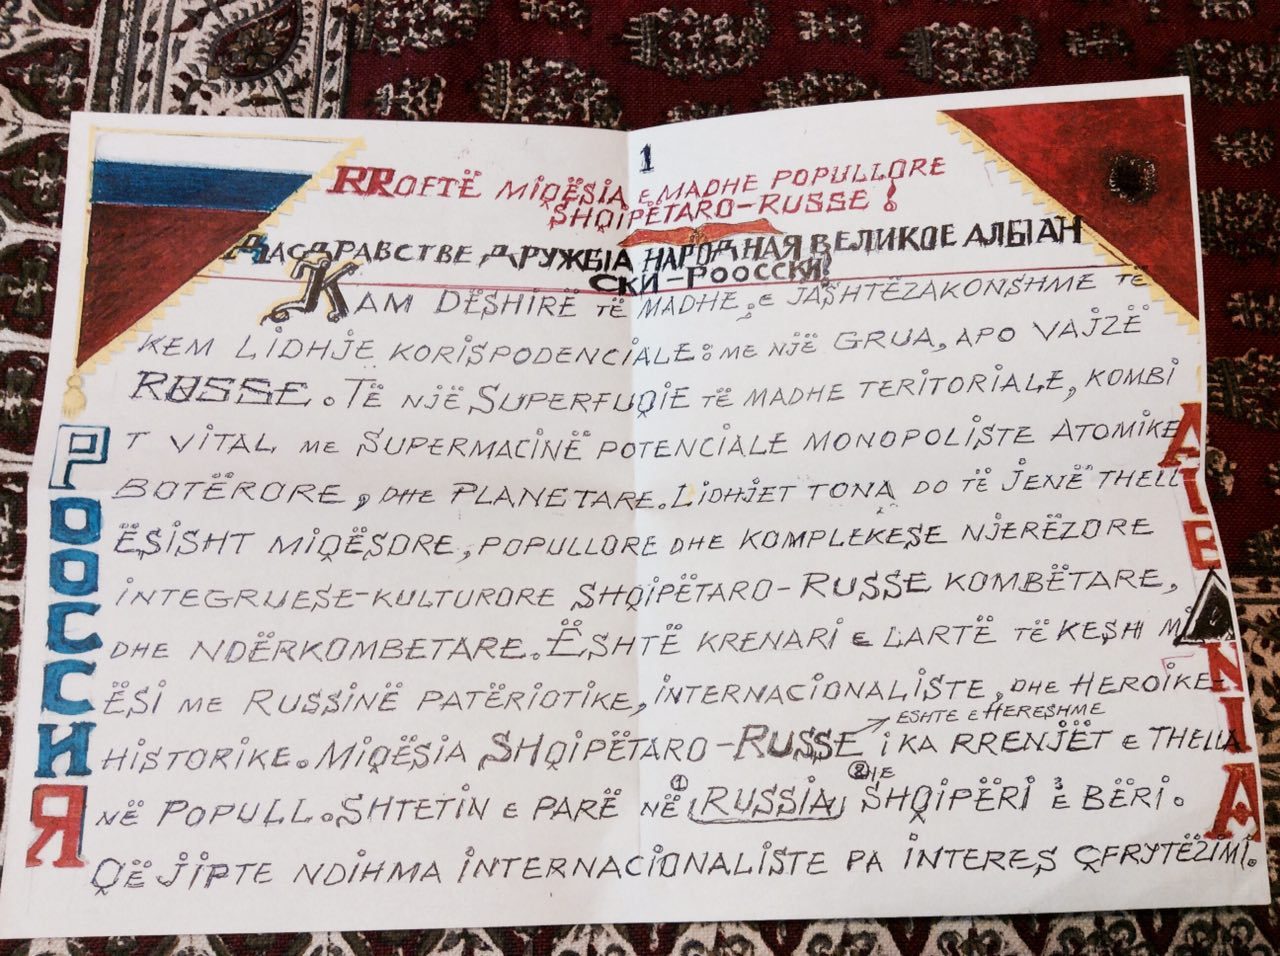 1
RROFTË MIQËSIA E MADHE POPULLORE
SHQIPËTARO-RUSSE!
ДАСДРАВСТВЕ ДРУЖБІА НАРОДНАЯ ВЕЛИКОЕ АЛБІАН
СКИ-РООССКИ!
KAM DËSHIRË TË MADHE, E JASHTËZAKONSHME TË
KEM LIDHJE KORISPODENCIALE: ME NJË GRUA, APO VAJZË
RUSSE. TË NJË SUPERFUQIE TË MADHE TERITORIALE, KOMBI
T VITAL ME SUPERMACINË POTENCIALE MONOPOLISTE ATOMIKE
BOTËRORE, DHE PLANETARE. LIDHJET TONA DO TË JENË THELL
ËSISHT MIQËSORE, POPULLORE DHE KOMPLEKESE NJERËZORE
INTEGRUESE-KULTURORE SHQIPËTARO-RUSSE KOMBËTARE,
DHE NDËRKOMBETARE. ËSHTË KRENARI E LARTË TË KESH MIQ
ËSI ME RUSSINË PATËRIOTIKE, INTERNACIONALISTE, DHE HEROIKE-
HISTORIKE. MIQËSIA SHQIPËTARO-RUSSE I KA RRENJËT E THELLA
ESHTE E HERESHME
NË POPULL. SHTETIN E PARË NË RUSSIA SHQIPËRI E BËRI.
1
2
QË JIPTE NDIHMA INTERNACIONALISTE PA INTERES ÇFRYTËZIMI.
РОССИЯ
ALBANIA